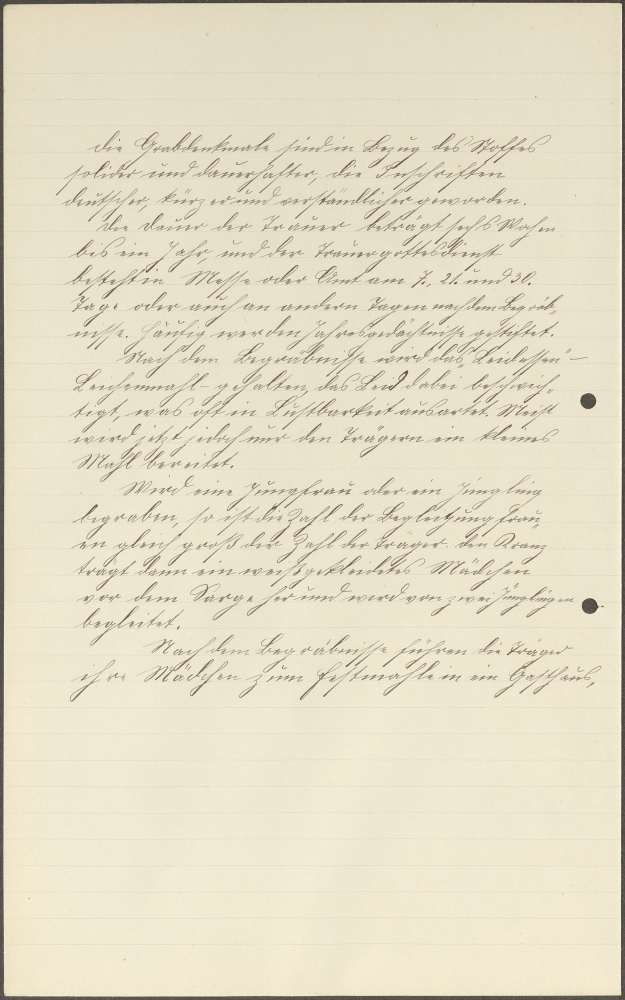 Die Grabdenkmale sind in Bezug des Stoffes
solider und dauerhafter, die Inschriften
deutscher, kürzer und verständlicher geworden.
Die Dauer der Trauer beträgt sechs Wochen
bis ein Jahr, und der Trauergottesdienst
besteht in Messe oder Amt am 7., 21. und 30.
Tage oder auch an andern Tagen nach dem Begräb-
nisse. Häufig werden Jahresgedächtnisse gestiftet.
Nach dem Begräbnisse wird das „Leidessen" -
Leichenmahl - gehalten, das Leid dabei beschwich-
tigt, was oft in Lustbarkeit ausartet. Meist
wird jetzt jedoch nur den Trägern ein kleines
Mahl bereitet.
Wird eine Jungfrau oder ein Jüngling
begraben, so ist die Zahl der Begleitjungfrau-
en gleich groß der Zahl der Träger. Den Kranz
trägt dann ein weißgekleidetes Mädchen
vor dem Sarge her und wird von zwei Jünglingen
begleitet.
Nach dem Begräbnisse führen die Träger
ihre Mädchen zum Festmahle in ein Gasthaus,